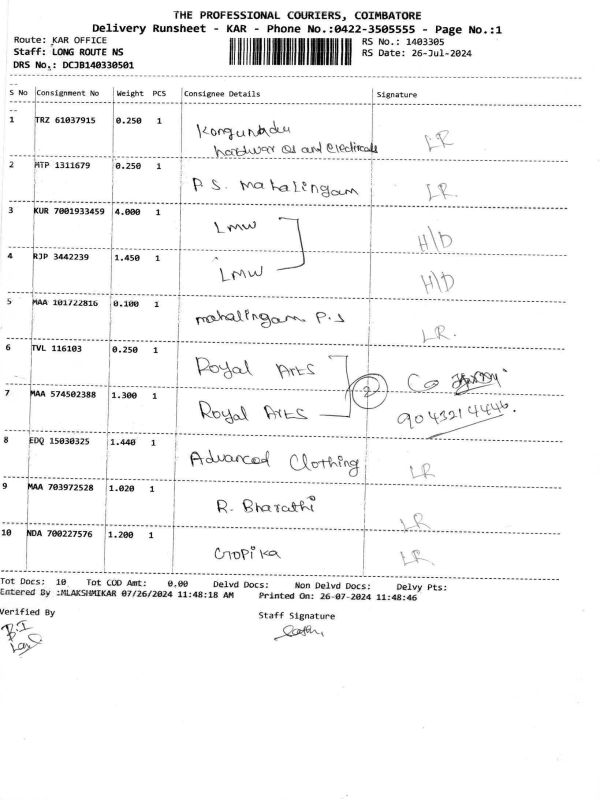 THE PROFESSIONAL COURIERS, COIMBATORE
Delivery Runsheet - KAR - Phone No.:0422-3505555 - Page No.:1
Route: KAR OFFICE RS No.: 1403305
Staff: LONG ROUTE NS RS Date: 26-Jul-2024
DRS No.: DCJB140330501
S No Consignment No Weight PCS Consignee Details Signature
1 TRZ 61037915 0.250 1 Kongunadu
hardwar and electricals LR
2 MTP 1311679 0.250 1 P.S. Mahalingam LR.
3 KUR 7001933459 4.000 1 LMW H/D
4 RJP 3442239 1.450 1 LMW H/D
5 MAA 101722816 0.100 1 mahalingam P.S LR.
6 TVL 116103 0.250 1 Royal Arts Co
7 MAA 574502388 1.300 1 Royal Arts 2 9043214446.
8 EDQ 15030325 1.440 1 Advanced Clothing LR
9 MAA 703972528 1.020 1 R. Bharathi LR
10 NDA 700227576 1.200 1 Gopika LR.
Tot Docs: 10 Tot COD Amt: 0.00 Delvd Docs: Non Delvd Docs: Delvy Pts:
Entered By :MLAKSHMIKAR 07/26/2024 11:48:18 AM Printed On: 26-07-2024 11:48:46
Verified By Staff Signature